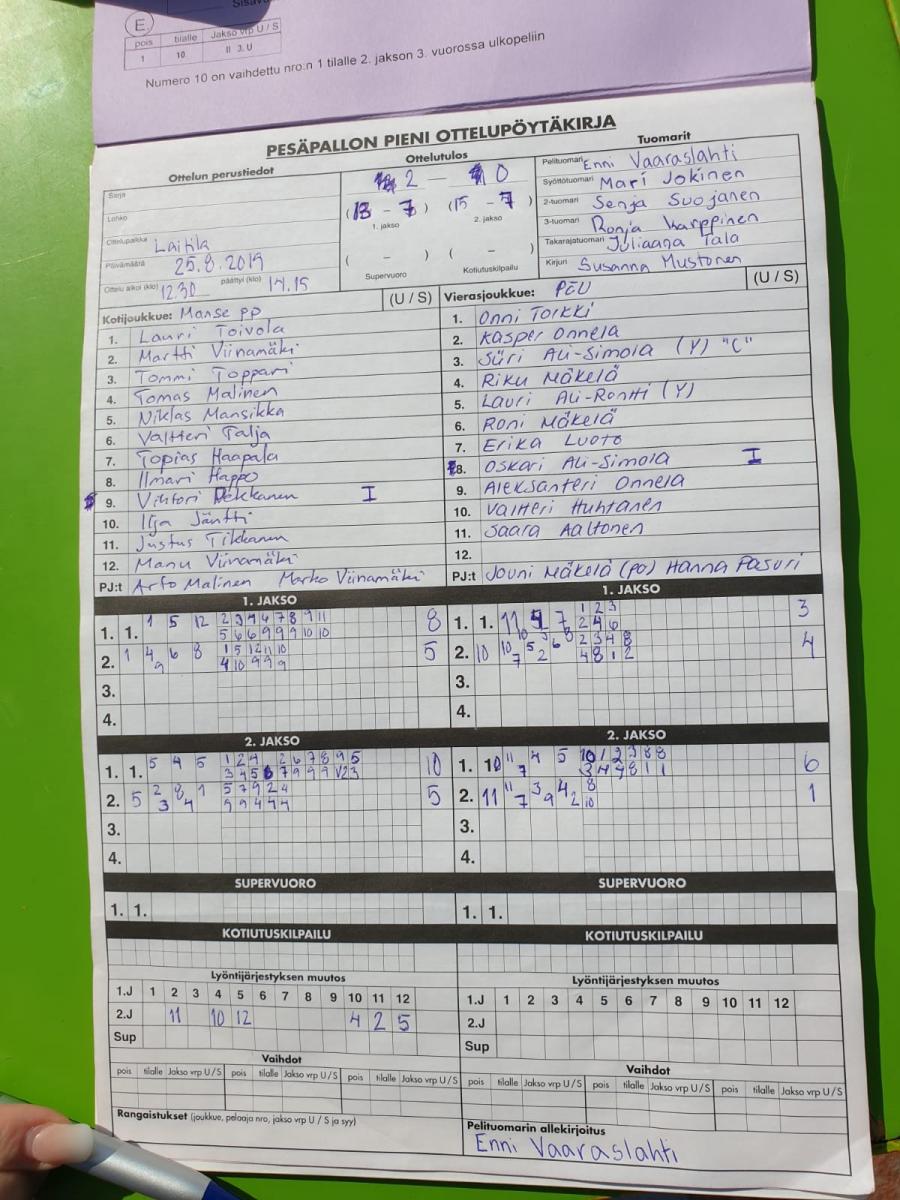 E
pois tilalle Jakso vrp U / S
1 10 II 3. U
Numero 10 on vaihdettu nro:n 1 tilalle 2. jakson 3. vuorossa ulkopeliin
PESÄPALLON PIENI OTTELUPÖYTÄKIRJA
Ottelun perustiedot
Sarja
Lohko
Ottelupaikka Laitila
Päivämäärä 25.8.2019
Ottelu alkoi (klo) 12.30 päättyi (klo) 14.15
Ottelutulos
2 – 0
(13 – 7) (15 – 7)
1. jakso 2. jakso
( – ) ( – )
Supervuoro Kotiutuskilpailu
Tuomarit
Pelituomari Enni Vaaraslahti
Syöttötuomari Mari Jokinen
2-tuomari Senja Suojanen
3-tuomari Ronja Karppinen
Takarajatuomari Juliaana Tala
Kirjuri Susanna Mustonen
Kotijoukkue: Manse PP (U / S)
1. Lauri Toivola
2. Martti Viinamäki
3. Tommi Toppari
4. Tomas Malinen
5. Niklas Mansikka
6. Valtteri Talja
7. Topias Haapala
8. Ilmari Happo
9. Vihtori Pekkanen I
10. Ilja Jäntti
11. Justus Tikkanen
12. Manu Viinamäki
PJ:t Arto Malinen Marko Viinamäki
Vierasjoukkue: PEU (U / S)
1. Onni Torkki
2. Kasper Onnela
3. Siiri Ali-Simola (Y) "C"
4. Riku Mäkelä
5. Lauri Ali-Rontti (Y)
6. Roni Mäkelä
7. Erika Luoto
8. Oskari Ali-Simola I
9. Aleksanteri Onnela
10. Valtteri Huhtanen
11. Saara Aaltonen
12.
PJ:t Jouni Mäkelä (PO) Hanna Pasuri
1. JAKSO
1. 1. 1 5 12 2 3 4 6 7 8 9 11 8
5 6 6 9 9 9 10 10
2. 1 4 6 8 1 5 12 11 10 5
9 4 10 9 9 9
3.
4.
1. JAKSO
1. 1. 11 7 1 2 3 3
2 4 6
2. 10 10 5 3 6 8 2 3 4 8 4
7 2 4 8 1 2
3.
4.
2. JAKSO
1. 1. 5 4 5 1 2 4 2 6 7 8 9 5 10
3 4 5 6 7 9 9 9 12 3
2. 5 2 8 1 5 7 9 2 4 5
3 4 9 9 4 4 4
3.
4.
2. JAKSO
1. 10 11 4 5 10 1 2 3 8 8 6
7 3 4 4 8 1 1
2. 11 11 3 4 8 1
7 9 2 10
3.
4.
SUPERVUORO
1. 1.
SUPERVUORO
1. 1.
KOTIUTUSKILPAILU
KOTIUTUSKILPAILU
Lyöntijärjestyksen muutos
1.J 1 2 3 4 5 6 7 8 9 10 11 12
2.J 11 10 12 4 2 5
Sup
Lyöntijärjestyksen muutos
1.J 1 2 3 4 5 6 7 8 9 10 11 12
2.J
Sup
Vaihdot
pois tilalle Jakso vrp U/S pois tilalle Jakso vrp U/S pois tilalle Jakso vrp U/S
Vaihdot
pois tilalle Jakso vrp U/S pois tilalle Jakso vrp U/S pois tilalle Jakso vrp U/S
Rangaistukset (joukkue, pelaaja nro, jakso vrp U / S ja syy)
Pelituomarin allekirjoitus
Enni Vaaraslahti